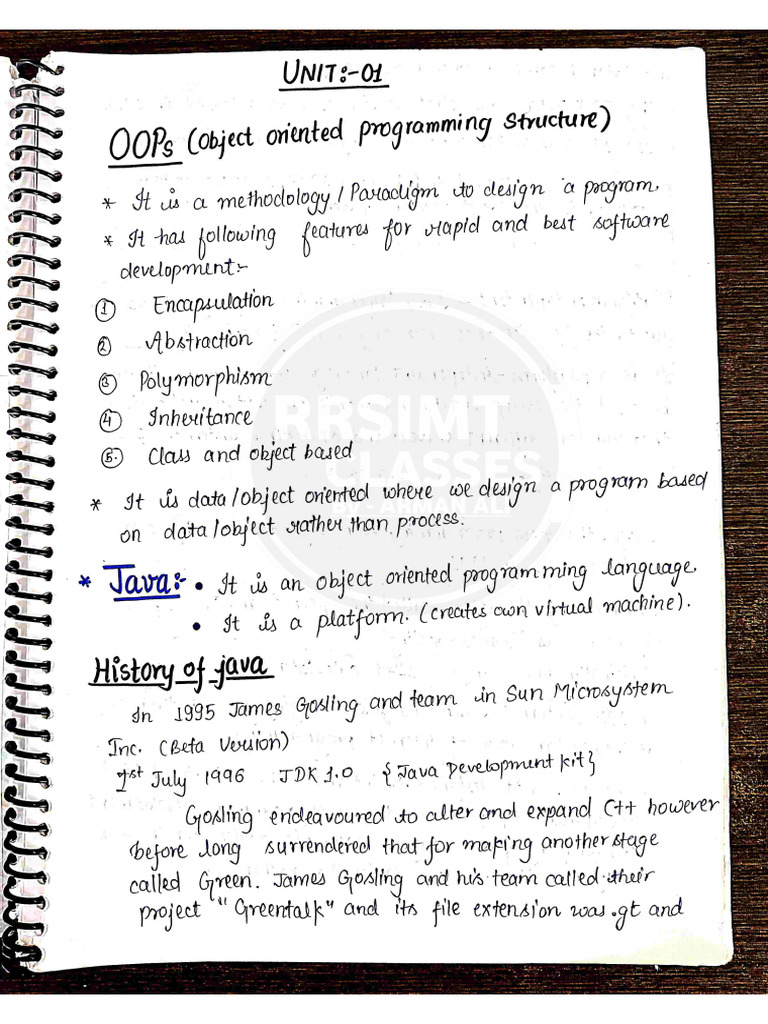 UNIT:-01
OOPs (Object oriented programming structure)
* It is a methodology / Paradigm to design a program.
* It has following features for rapid and best software
development:-
① Encapsulation
② Abstraction
③ Polymorphism
④ Inheritance
⑤. Class and object based
* It is data/object oriented where we design a program based
on data/object rather than process.
* Java:- • It is an object oriented programming language.
• It is a platform. (creates own virtual machine).
History of java
In 1995 James Gosling and team in Sun Microsystem
Inc. (Beta Version)
1st July 1996 JDK 1.0 {Java Development kit}
Gosling endeavoured to alter and expand C++ however
before long surrendered that for making another stage
called Green. James Gosling and his team called their
project "Greentalk" and its file extension was .gt and
RRSIMT
CLASSES
BY - ARMAN ALI